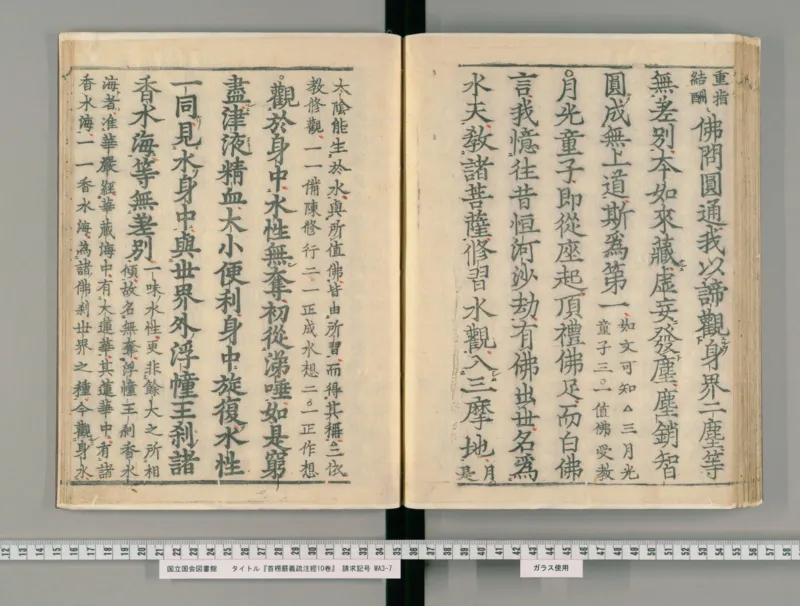 重指
結酬
佛問圓通我以諦觀身界二塵等
無差別本如來藏虛妄發塵塵銷智
圓成無上道斯爲第一
如文可知△三月光
童子三○一值佛受教
月光童子即從座起頂禮佛足而白佛
言我憶往昔恒河沙劫有佛出世名爲
水天教諸菩薩修習水觀入三摩地
月
是
太陰能生於水與所值佛皆由所習而得其稱三依
教修觀一一備陳修行二一正成水想二○一正作想
觀於身中水性無奪初從涕唾如是窮
盡津液精血大小便利身中旋復水性
一同見水身中與世界外浮幢王刹諸
香水海等無差別
一味水性更非餘大之所相
傾故名無奪浮幢王刹香水
海者准華嚴經華藏海中有大蓮華其蓮華中有諸
香水海一一香水海為諸佛刹世界之種今觀身水
12 13 14 15 16 17 18 19 20 21 22 23 24 25 26 27 28 29 30 31 32 33 34 35 36 37 38 39 40 41 42 43 44 45 46 47 48 49 50 51 52 53 54 55 56 57 58
国立国会図書館 タイトル『首楞嚴義疏注經10巻』 請求記号 WA3-7
ガラス使用